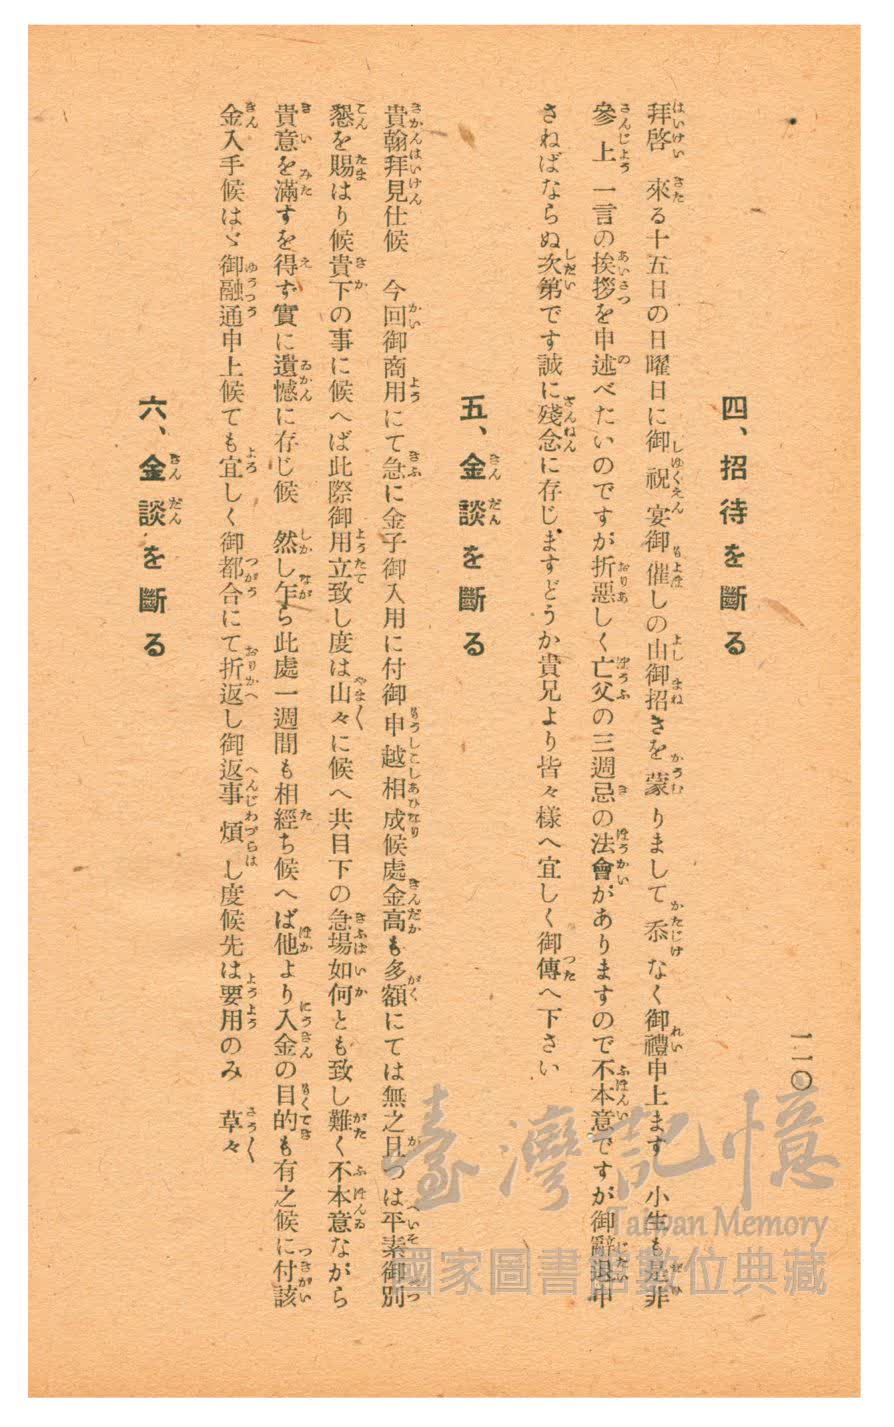 一一〇
四、招待を斷る
拜啓　來る十五日の日曜日に御祝宴御催しの由御招きを蒙りまして忝なく御禮申上ます　小生も是非
參上一言の挨拶を申述べたいのですが折惡しく亡父の三週忌の法會がありますので不本意ですが御辭退申
さねばならぬ次第です誠に殘念に存じますどうか貴兄より皆々樣へ宜しく御傳へ下さい
五、金談を斷る
貴翰拜見仕候　今回御商用にて急に金子御入用に付御申越相成候處金高も多額にては無之且つは平素御別
懇を賜はり候貴下の事に候へば此際御用立致し度は山々に候へ共目下の急場如何とも致し難く不本意ながら
貴意を滿すを得ず實に遺憾に存じ候　然し乍ら此處一週間も相經ち候へば他より入金の目的も有之候に付該
金入手候はゞ御融通申上候ても宜しく御都合にて折返し御返事煩し度候先は要用のみ　草々
六、金談を斷る
臺灣記憶
Taiwan Memory
國家圖書館數位典藏